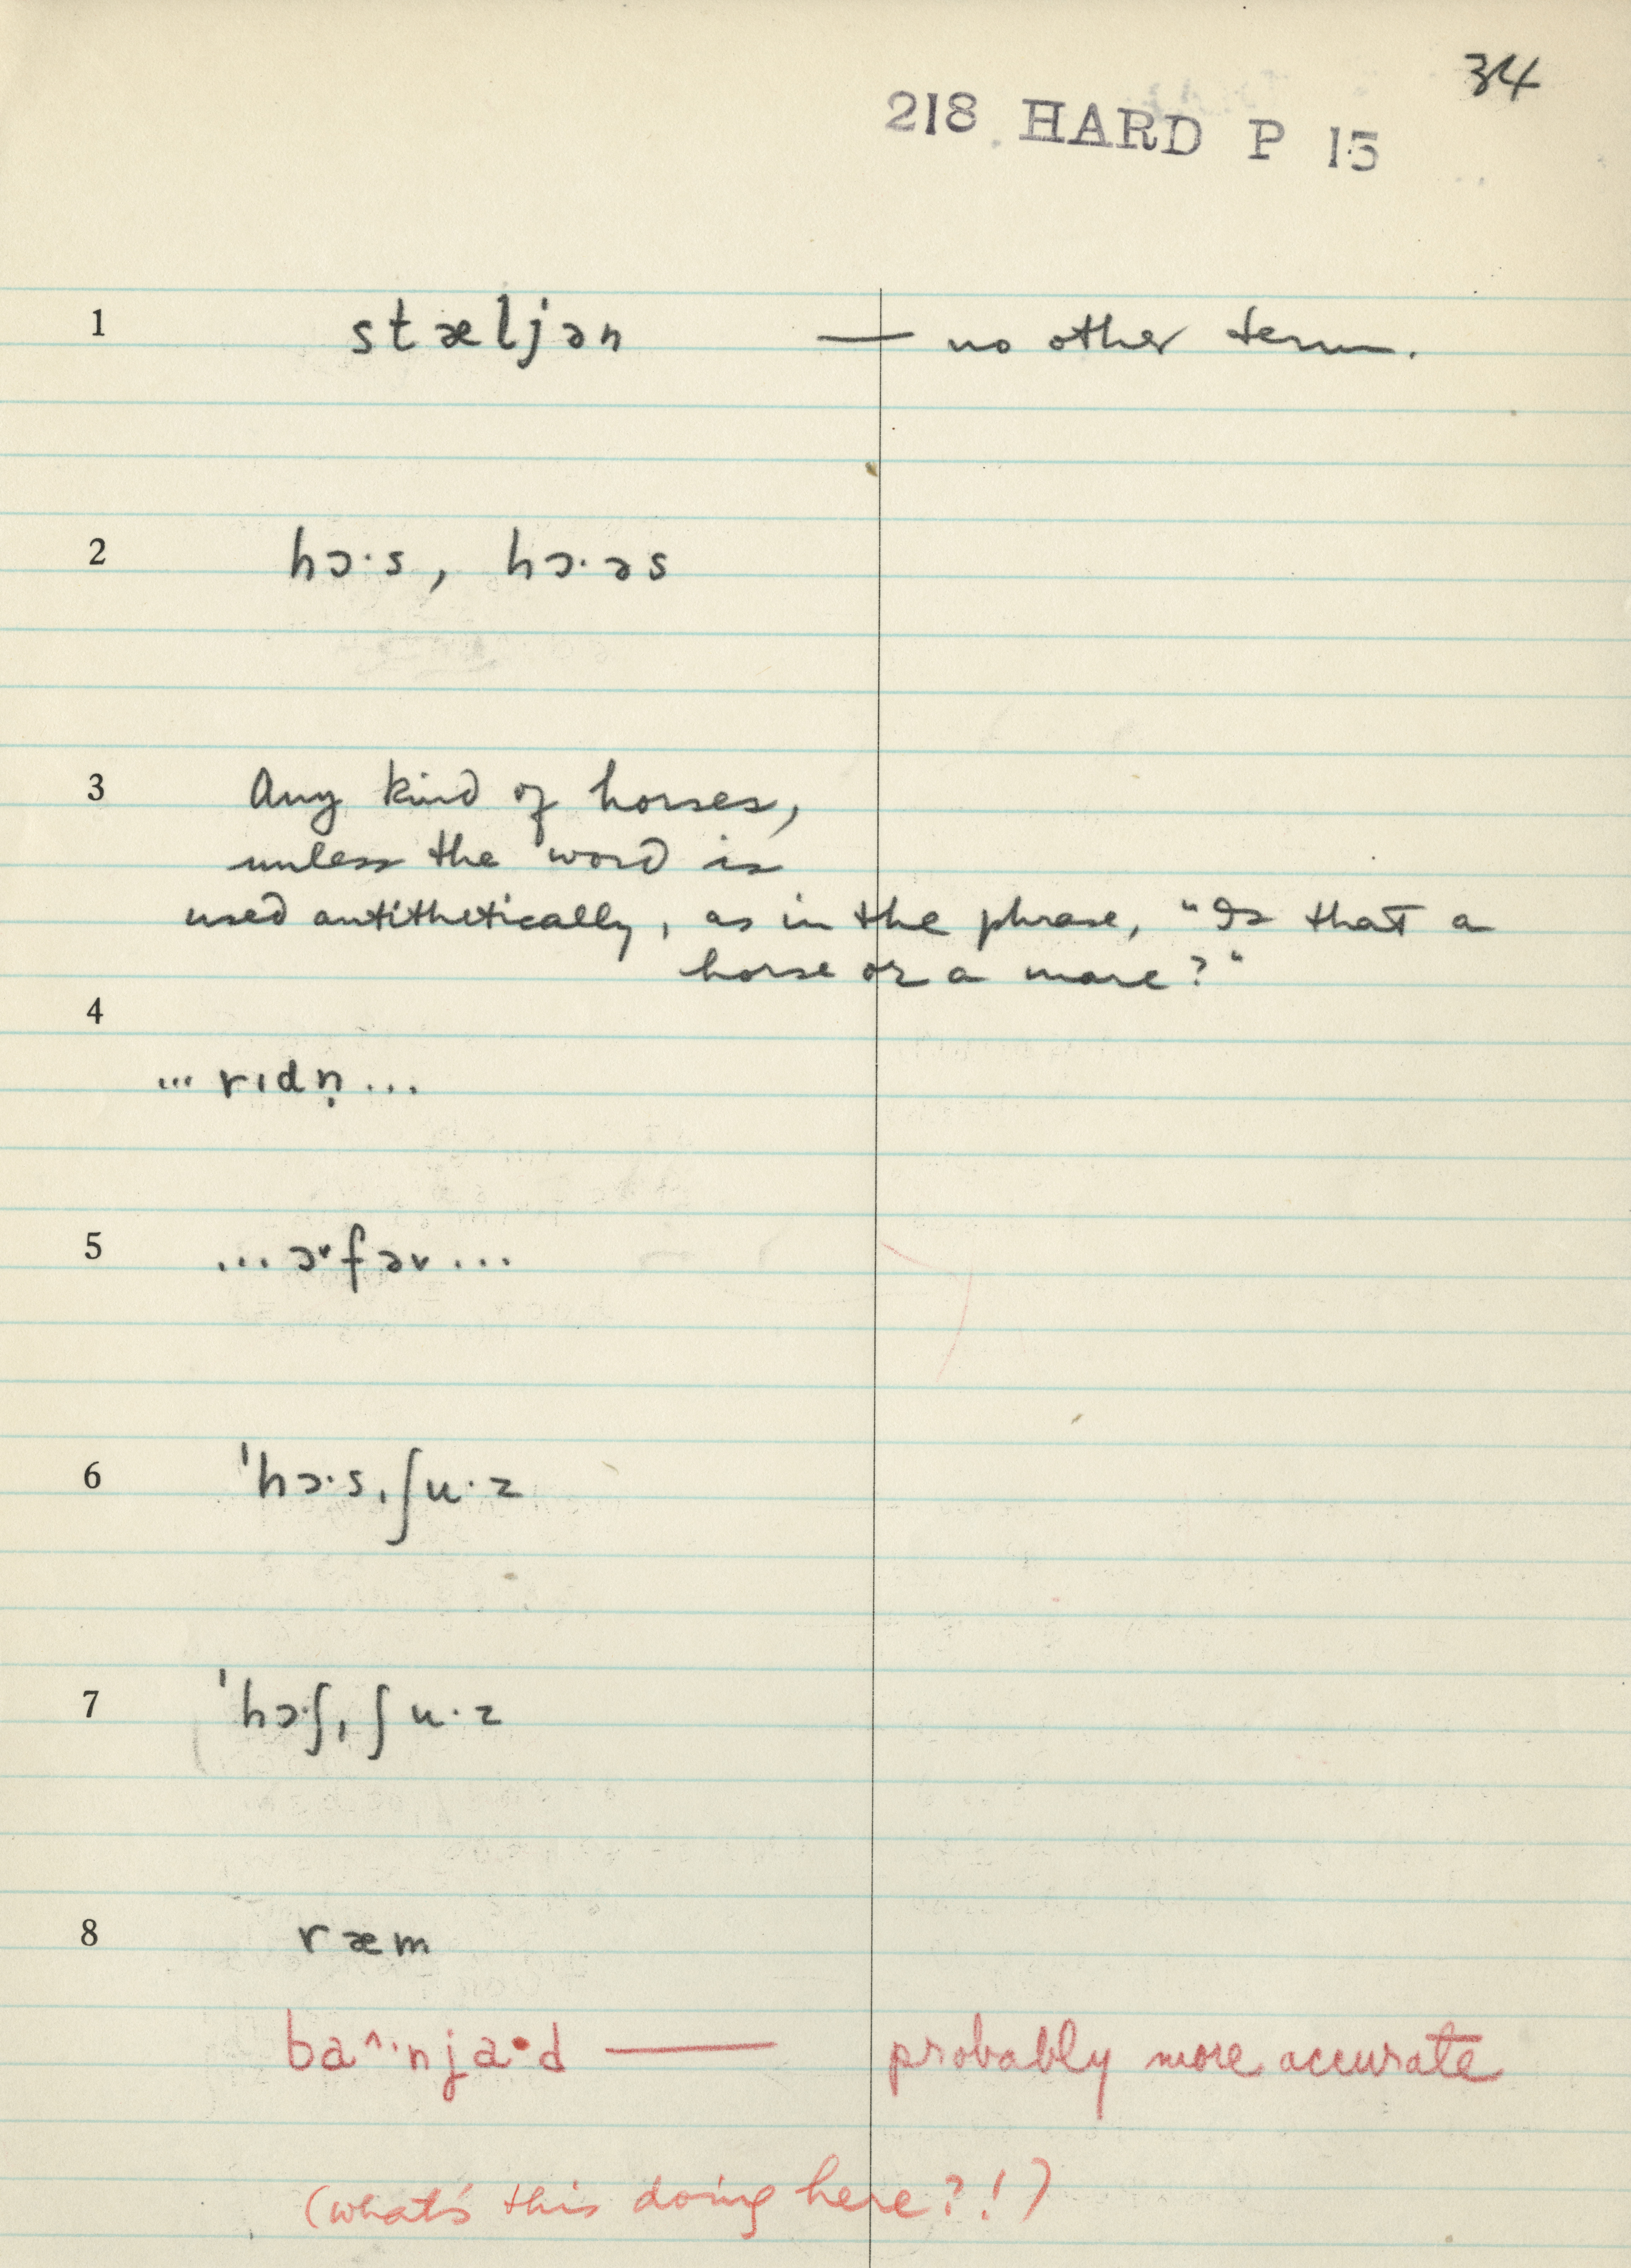 34
218 HARD P 15
1 stæljən — no other term.
2 hɔ·s, hɔ·əs
3 Any kind of horses,
unless the word is
used antithetically, as in the phrase, "Is that a
horse or a mare?"
4
... rɪdn̩ ...
5 ... ɚfəv ...
6 ˈhɔ·sˌʃu·z
7 ˈhɔ·ʃˌʃu·z
8 ræm
ba^·njɑ·d — probably more accurate
(what's this doing here?!)